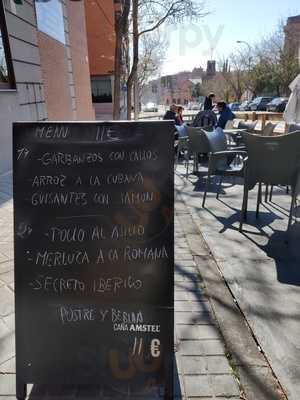 MENU 11€
1º
-GARBANZOS CON CALLOS
-ARROZ A LA CUBANA
-GUISANTES CON JAMON
2º
-POLLO AL AJILLO
-MERLUZA A LA ROMANA
-SECRETO IBERICO
POSTRE Y BEBIDA
CAÑA AMSTEL
11 €